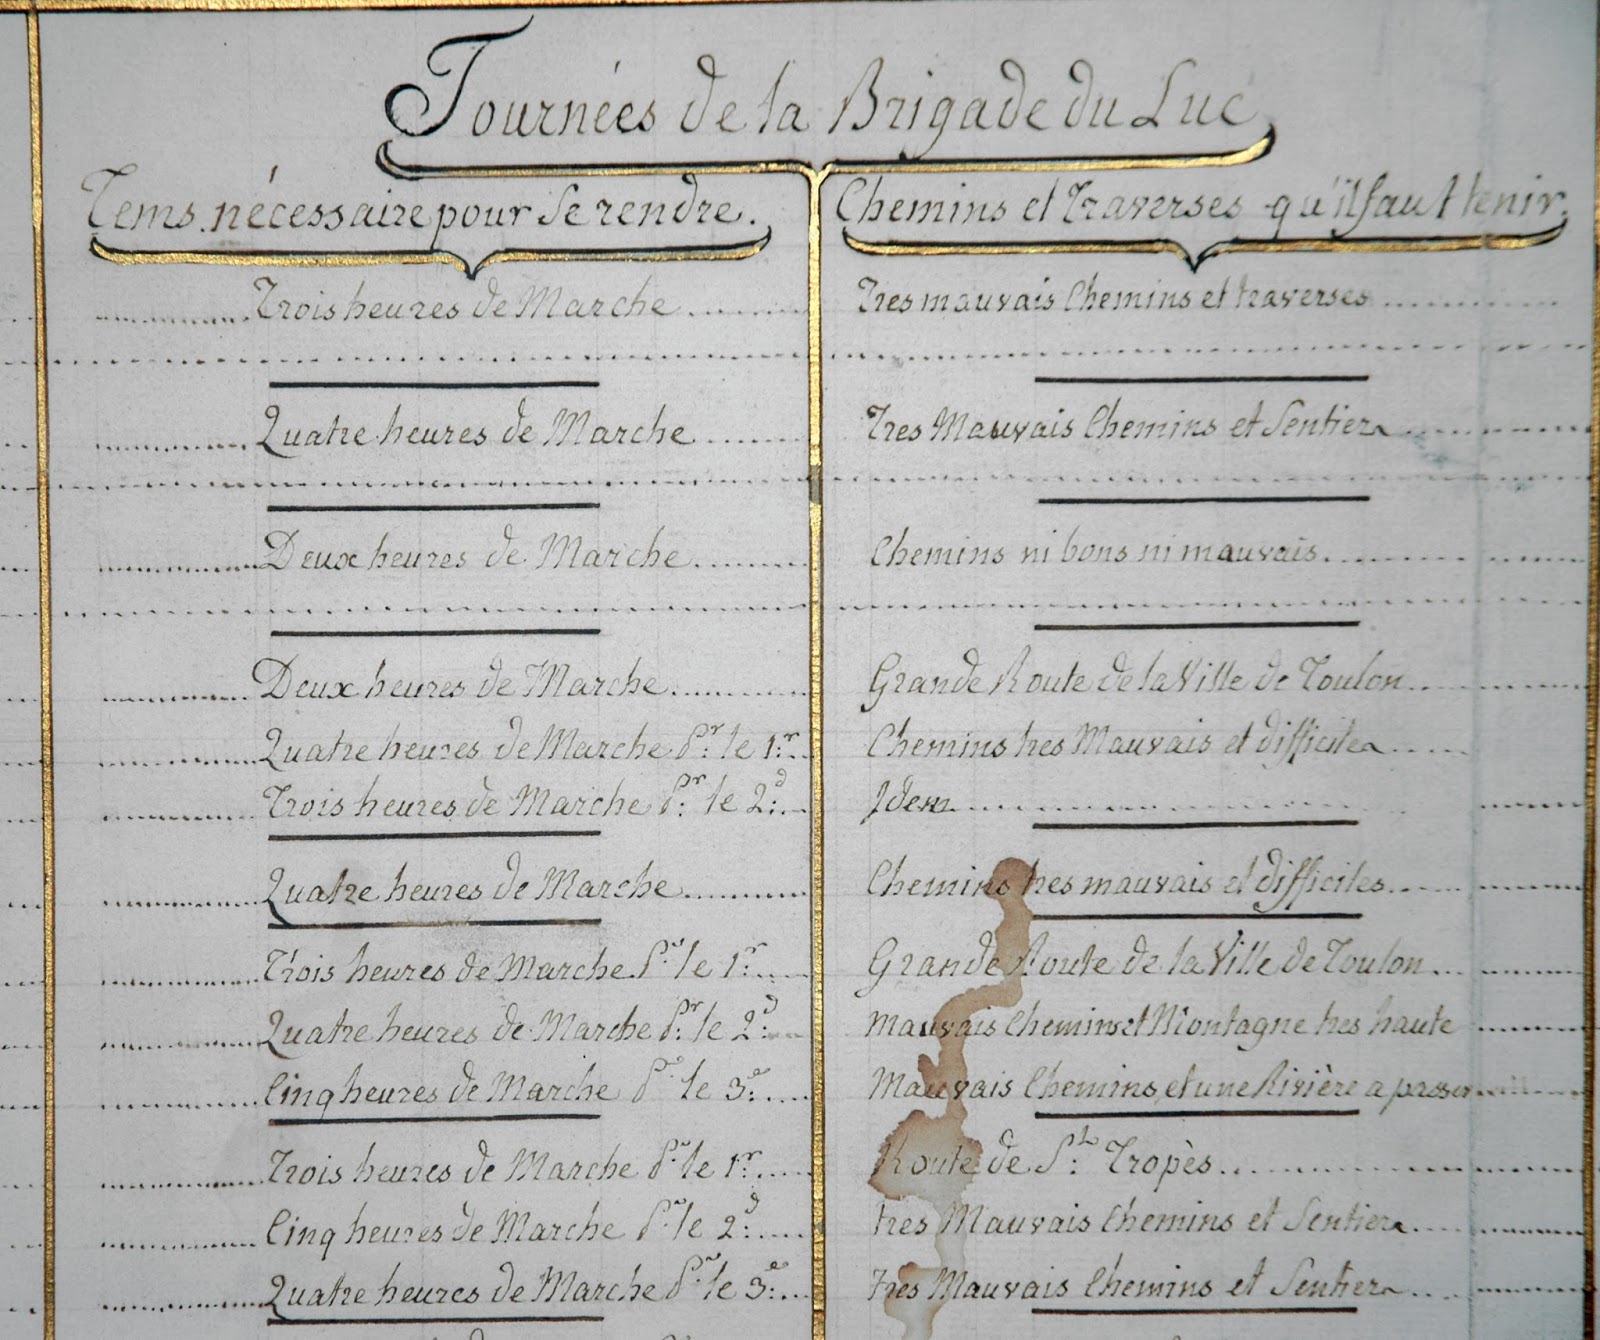 Tournées de la Brigade du Luc
Tems nécessaire pour se rendre. Chemins et Traverses qu'il faut tenir.
Trois heures de Marche Tres mauvais Chemins et traverses
Quatre heures de Marche Tres Mauvais Chemins et Sentiers
Deux heures de Marche Chemins ni bons ni mauvais
Deux heures de Marche Grande Route de la Ville de Toulon
Quatre heures de Marche Pr. le 1:r Chemins tres Mauvais et difficiles
Trois heures de Marche Pr. le 2:d Idem
Quatre heures de Marche Chemins tres mauvais et difficiles
Trois heures de Marche Pr. le 1r. Grande Route de la Ville de Toulon
Quatre heures de Marche Pr. le 2:d Mauvais Chemins et Montagne tres haute
Cinq heures de Marche Pr. le 3:e Mauvais Chemins, et une Rivière a passer
Trois heures de Marche Pr. le 1r. Route de St. Tropès
Cinq heures de Marche Pr. le 2:d tres Mauvais Chemins et Sentiers
Quatre heures de Marche Pr. le 3:e tres Mauvais Chemins et Sentiers